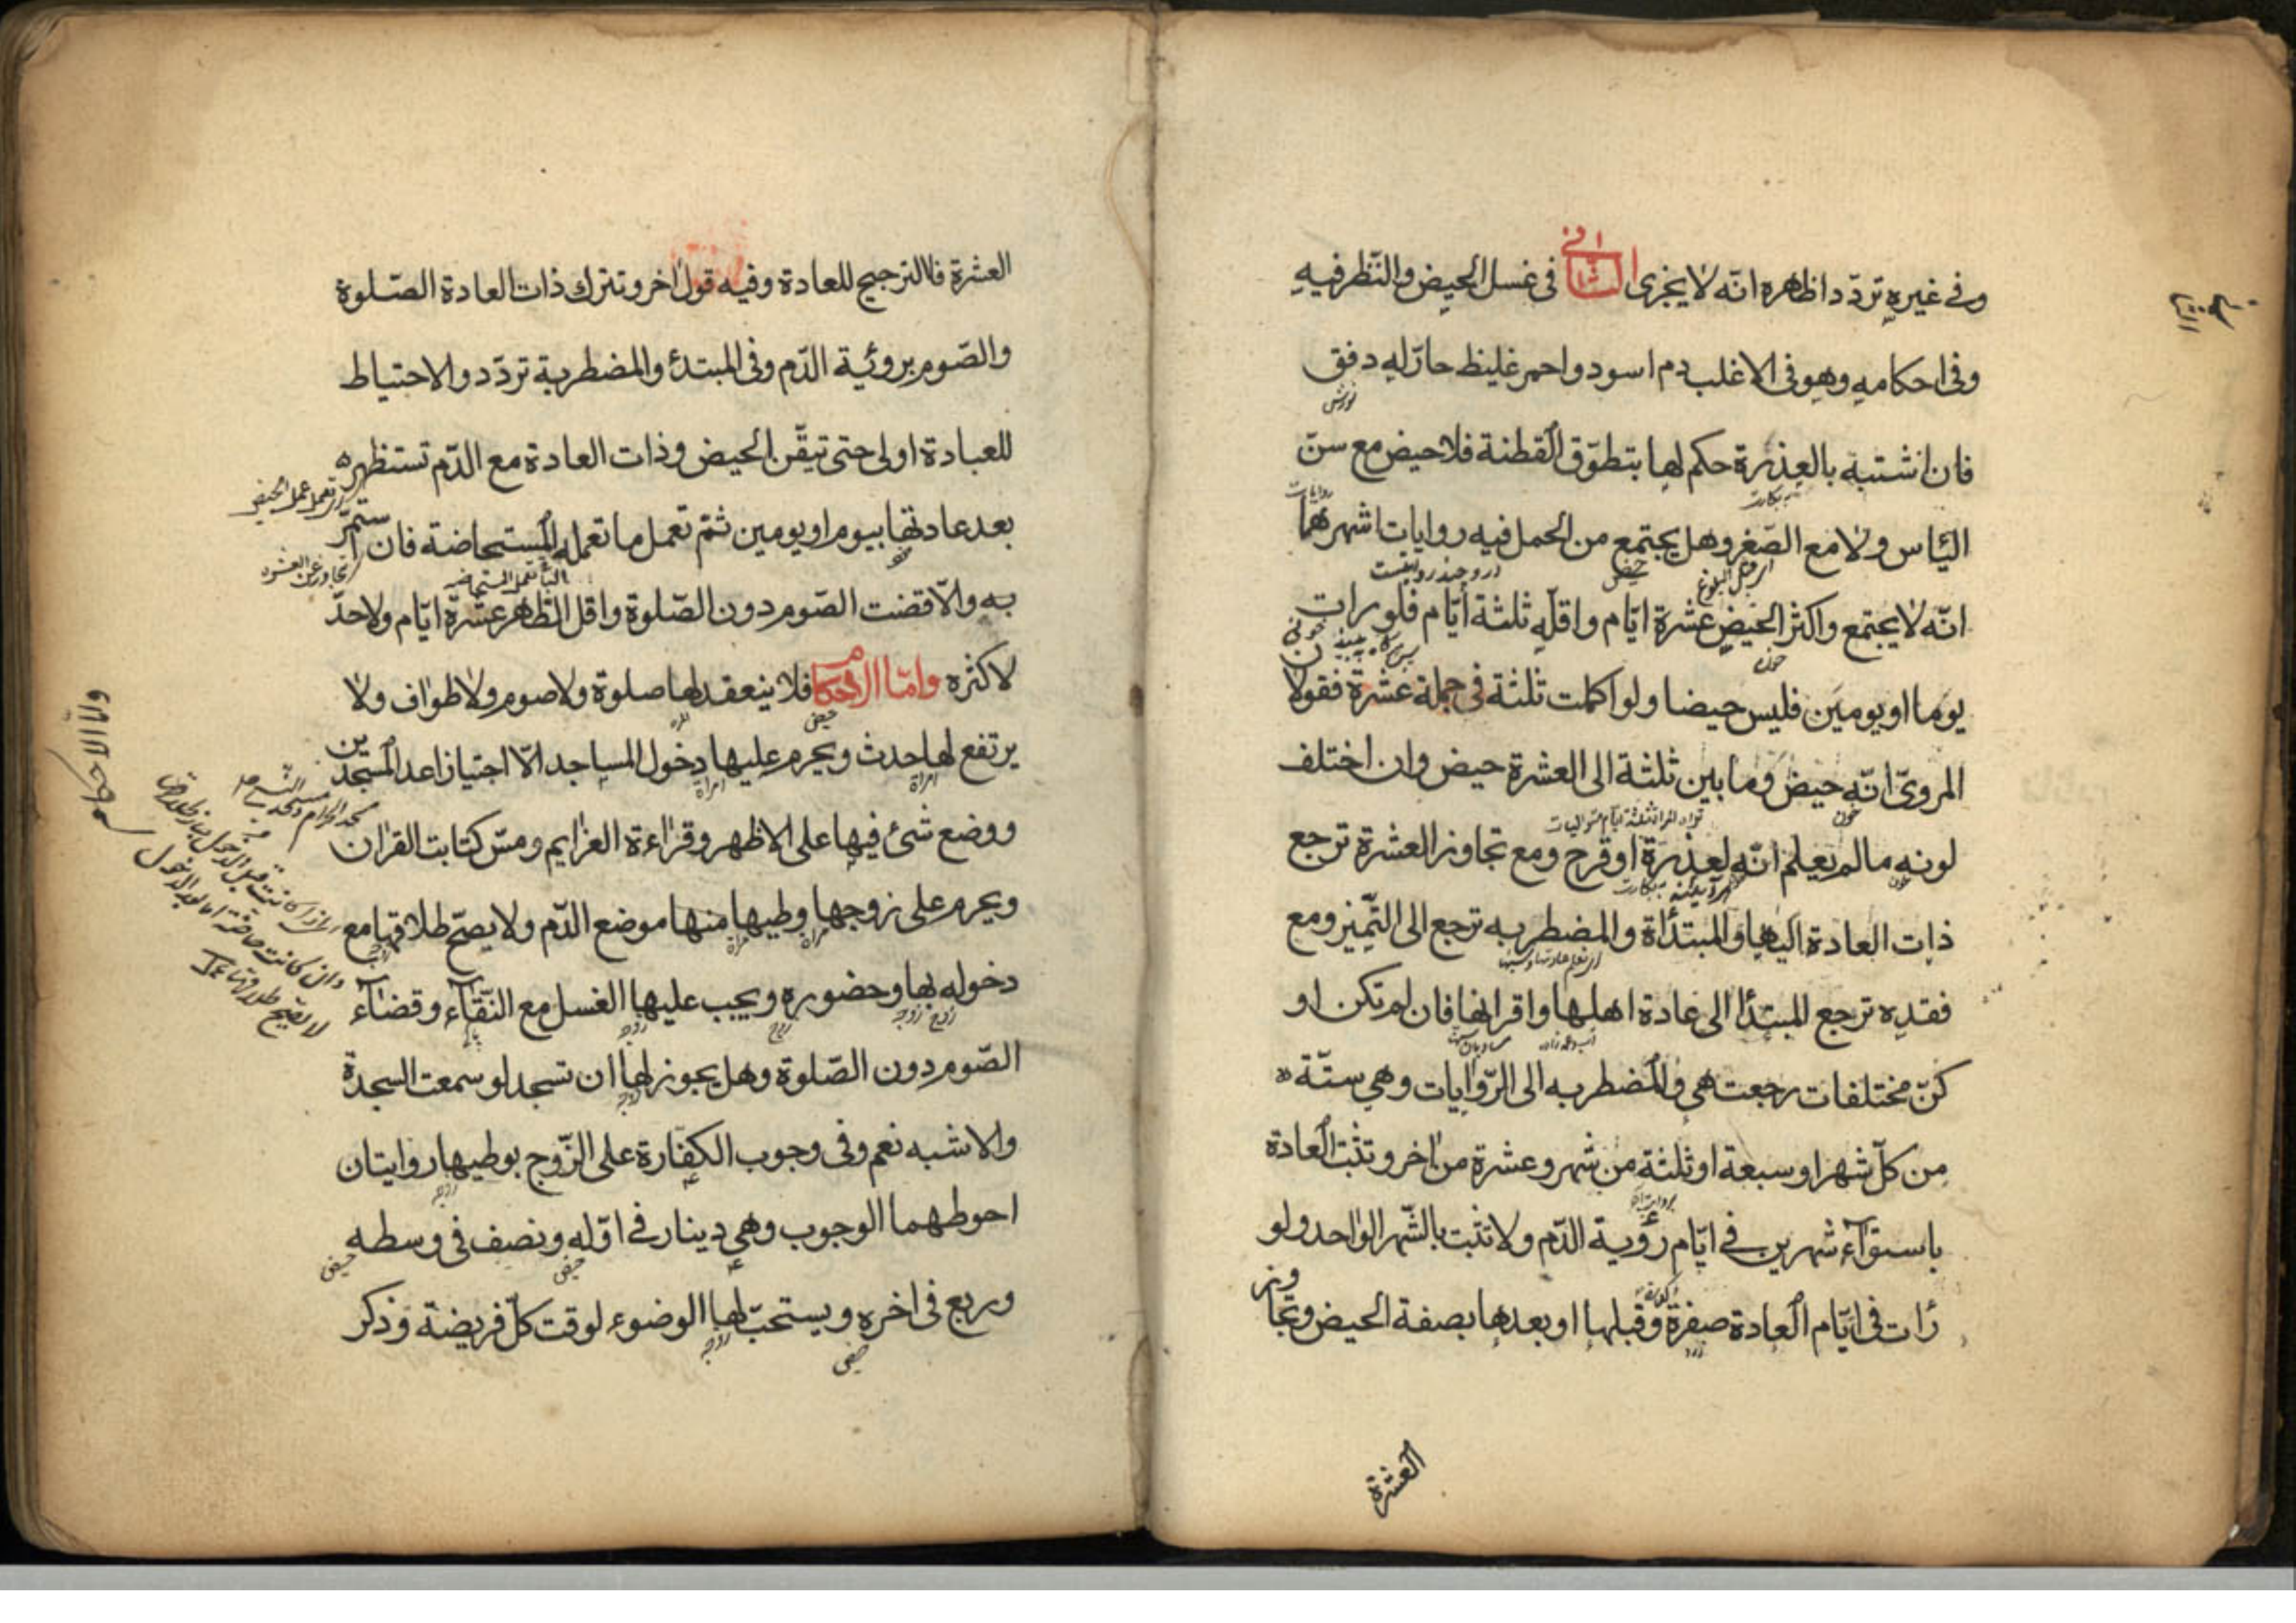 وفي غيره تردّد اظهره انّه لا يجزى الثانى فى غسل الحيض والنّظر فيه
وفى احكامه وهو فى الاغلب دم اسود واحمر غليظ حارّ له دفق
فان اشتبه بالعذرة حكم لها بتطوّق القطنة فلا حيض مع سنّ
الیٔاس ولا مع الصّغر وهل يجتمع من الحمل فيه روايات اشهرهما
انّه لا يجتمع واكثر الحيض عشرة ايّام واقلّه ثلثة أيّام فلو رات
يوما او يومين فليس حيضا ولو اكملت ثلثة فى جملة عشرة فقولان
المروىّ انّه حيض وما بين ثلثة الى العشرة حيض وان اختلف
لونه ما لم يعلم انّه لعذرة او قرح ومع تجاوز العشرة ترجع
ذات العادة اليها والمبتدأة والمضطربه ترجع الى التّميّز ومع
فقده ترجع المبتدٔا الى عادة اهلها واقرانها فان لم تكن او
كنّ مختلفات رجعت هى والمضطربه الى الرّوايات وهى ستّة
من كلّ شهر او سبعة او ثلثة من شهر وعشرة من اخر وتثبت العادة
باستوآء شهرين فى ايّام رؤية الدّم ولا تثبت بالشّهر الواحد ولو
رٔات فى ايّام العادة صفرة وقبلها او بعدها بصفة الحيض وتجاوز
العشرة
العشرة فالترجيح للعادة وفيه قول اخر وتترك ذات العادة الصّلوة
والصّوم بروئية الدّم وفى المبتدٔ والمضطربة تردّد والاحتياط
للعبادة اولى حتى تيقّن الحيض وذات العادة مع الدّم تستظهر
بعد عادتها بيوم او يومين ثمّ تعمل ما تعمله المستحاضة فان استمرّ
به والّا قضت الصّوم دون الصّلوة واقل الظّاهر عشرة ايّام ولا حدّ
لاكثره وامّا الاحكام فلا ينعقد لها صلوة ولا صوم ولا طواف ولا
يرتفع لها حدث ويحرم عليها دخول المساجد الّا اجتيازا عدا المسجدين
ووضع شئ فيها على الاظهر وقراءة العزايم ومسّ كتابت القران
ويحرم على زوجها وطيها منها موضع الدّم ولا يصحّ طلاقها مع
دخوله بها وحضوره ويجب عليها الغسل مع النّقآء وقضآء
الصّوم دون الصّلوة وهل يجوز لها ان تسجد لو سمعت السجدة
والاشبه نعم وفى وجوب الكفارة على الزّوج بوطيها روايتان
احوطهما الوجوب وهى دينار فى اوّله ونصف فى وسطه
وربع فى اخره ويستحبّ لها الوضوء لوقت كلّ فريضة وذكر
وامّا الاحكام